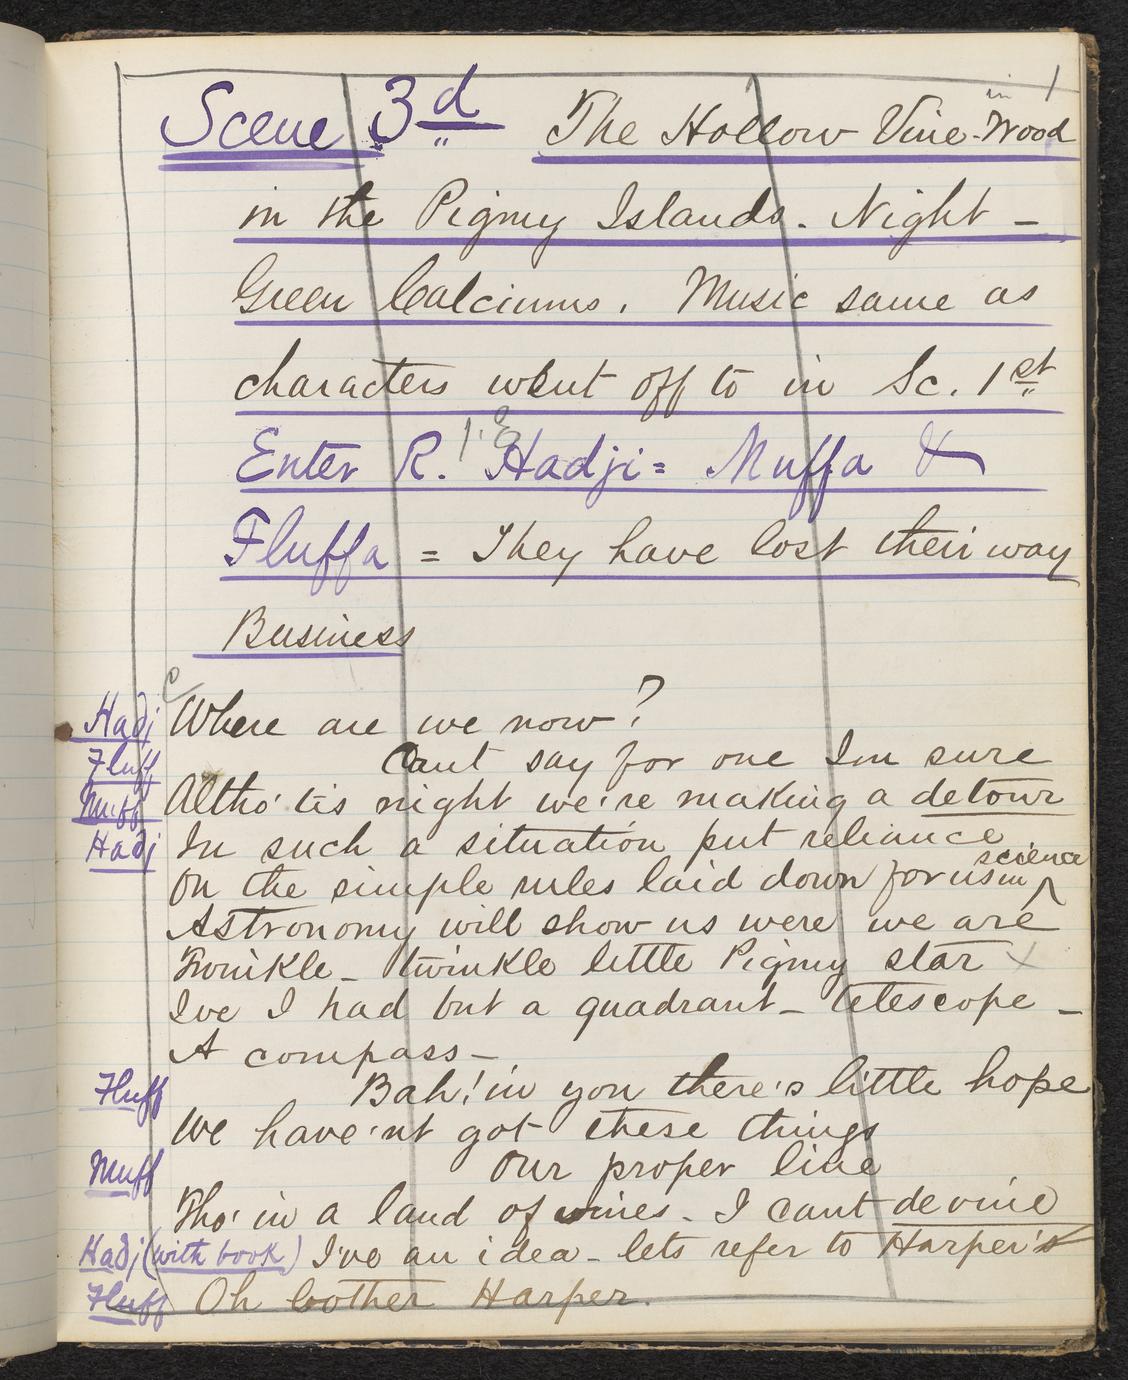 in 1
Scene 3d The Hollow Vine-Wood
in the Pigmy Islands. Night -
Green Calciums. Music same as
characters went off to in Sc. 1st
Enter R. 1. E Hadji = Muffa &
Fluffa = They have lost their way
Business
Hadj Where are we now?
Fluff Cant say for one Im sure
Muff Altho' tis night we're making a detour
Hadj In such a situation put reliance
science
On the simple rules laid down for us in
Astronomy will show us were we are
Twinkle - twinkle little Pigmy star x
Ive I had but a quadrant - telescope -
A compass -
Fluff Bah! in you there's little hope
We have'nt got these things
Muff Our proper line
Tho' in a land of vines - I cant devine
Hadj (with book) I've an idea - lets refer to Harper's
Fluff Oh bother Harper.